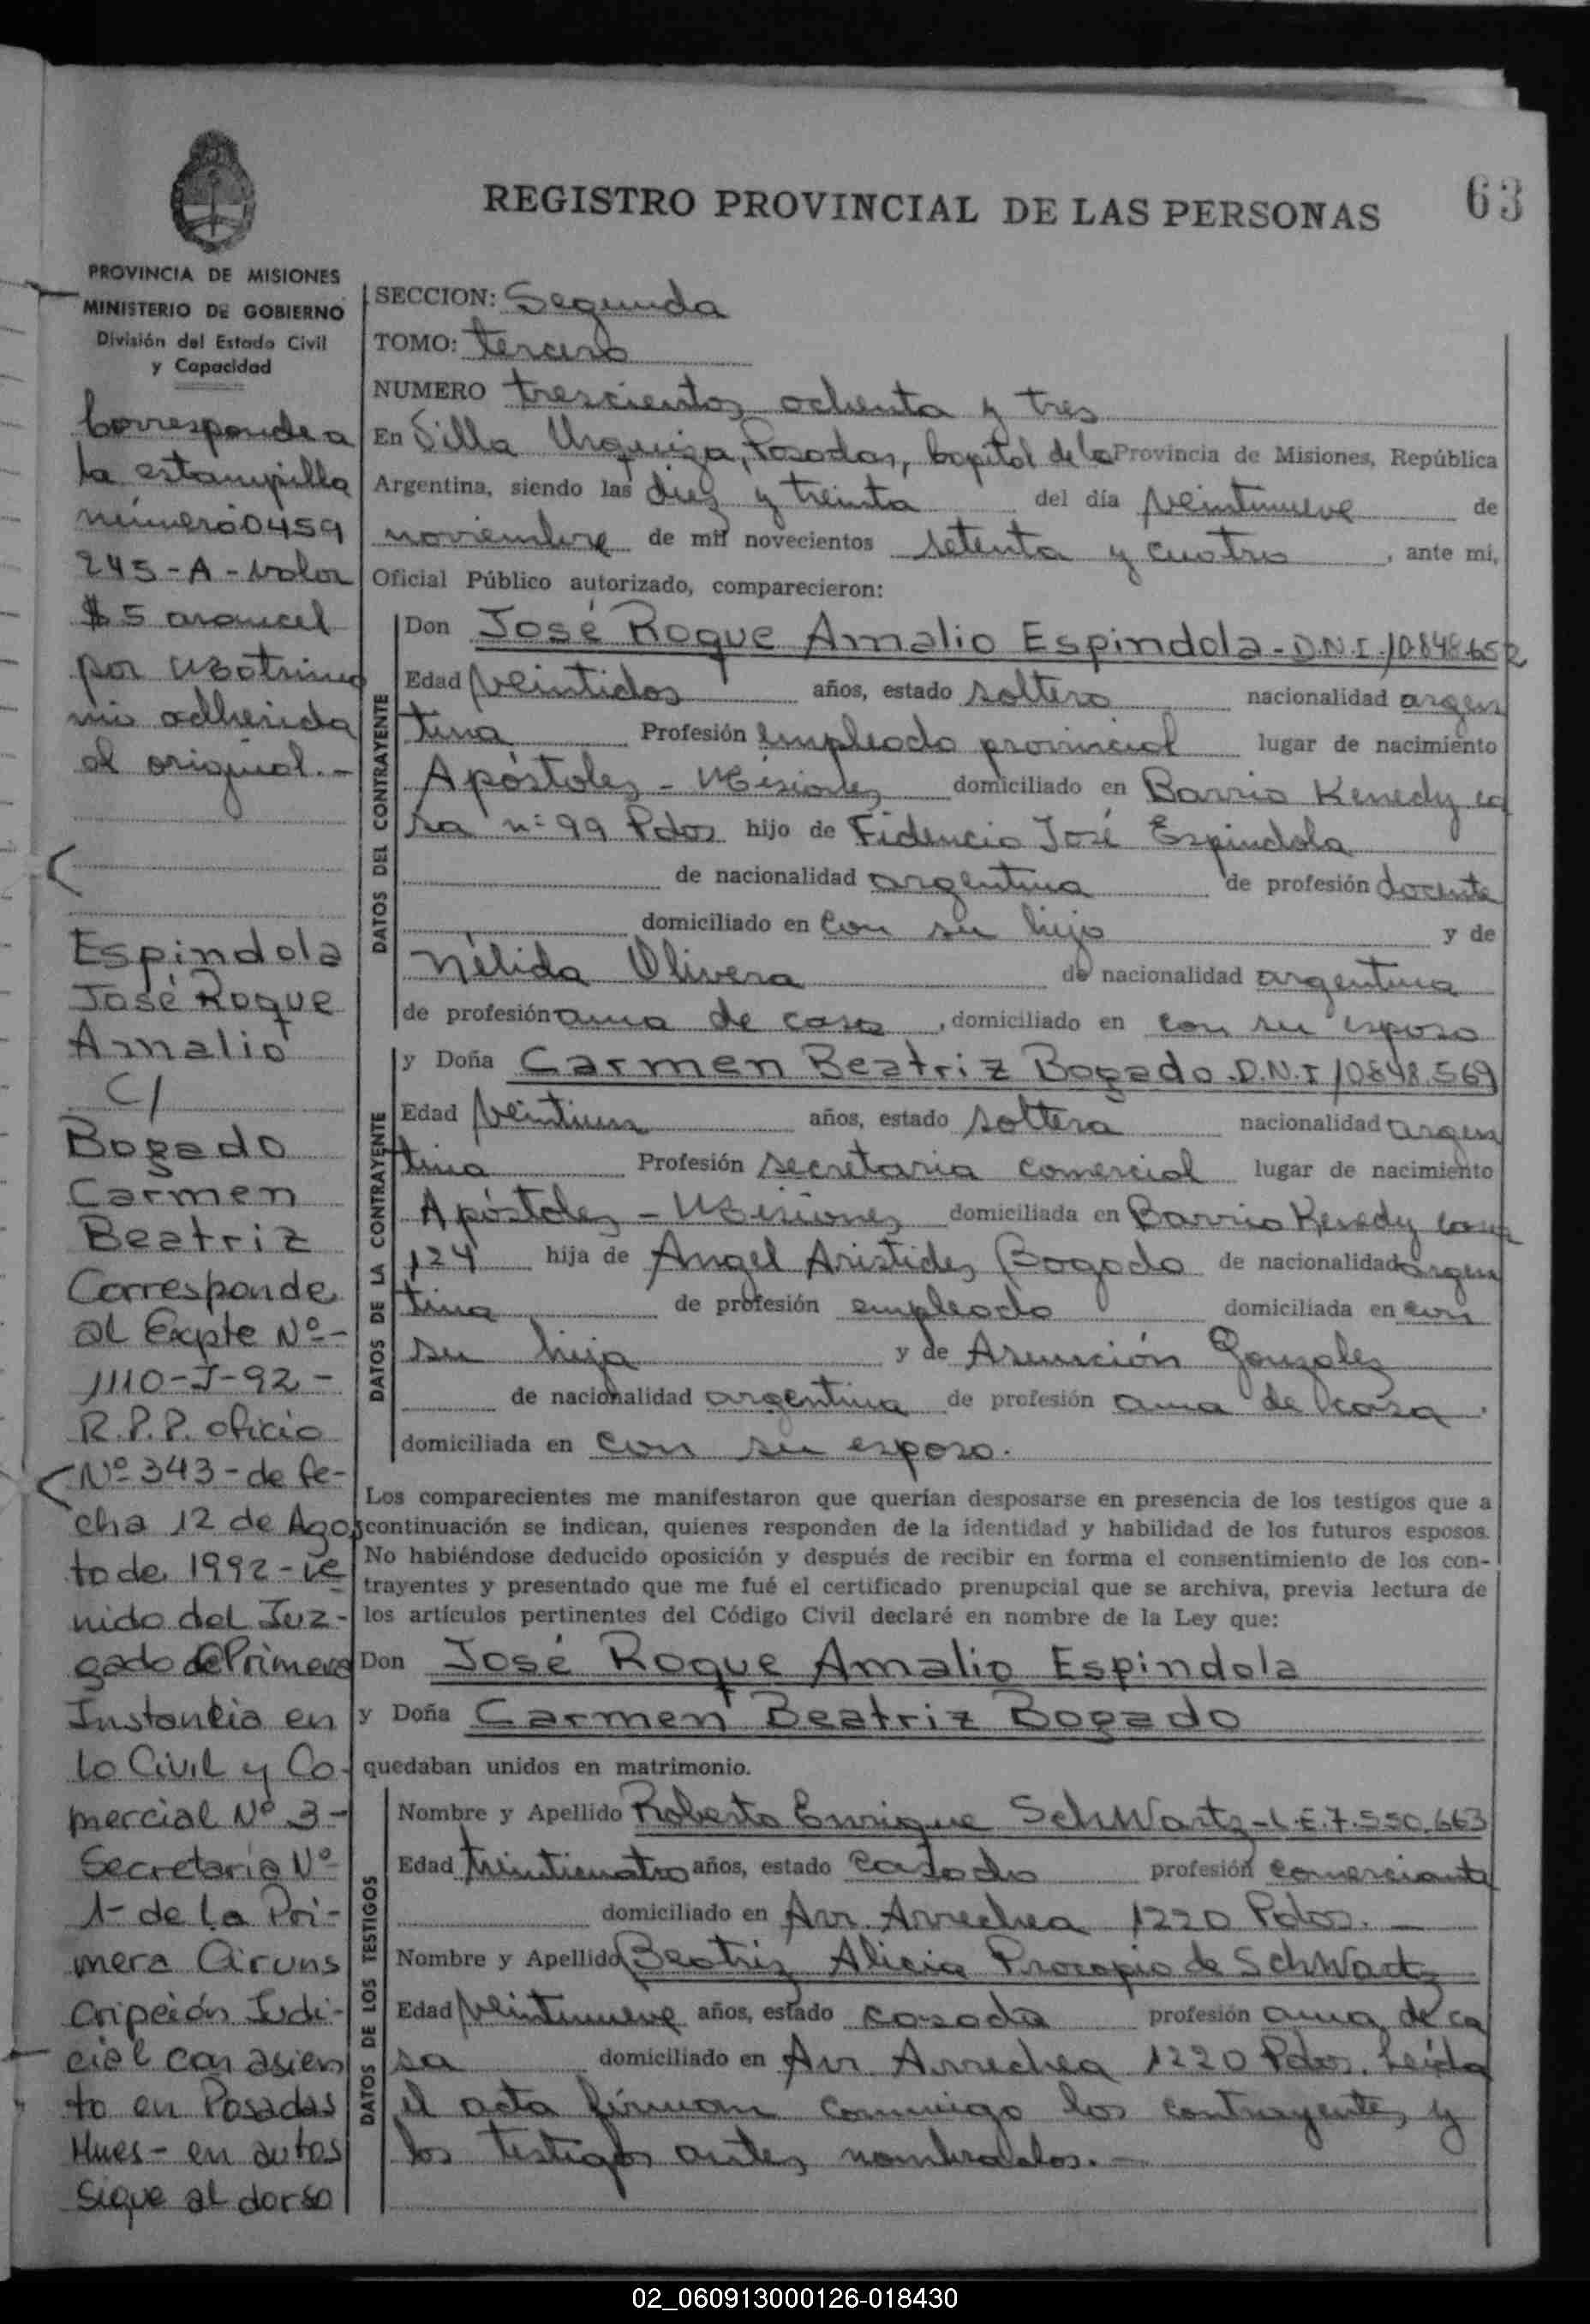 REGISTRO PROVINCIAL DE LAS PERSONAS
63
PROVINCIA DE MISIONES
MINISTERIO DE GOBIERNO
División del Estado Civil
y Capacidad
Corresponde a
la estampilla
número 0459
245-A-valor
$5 arancel
por Matrimo
nio adherida
al original.-
Espindola
José Roque
Amalio
C/
Bogado
Carmen
Beatriz
Corresponde
al Expte Nº-
1110-J-92-
R.P.P. oficio
Nº 343-de fe-
cha 12 de Agos
to de 1992-ve
nido del Juz-
gado de Primera
Instancia en
lo Civil y Co-
mercial Nº 3-
Secretaría Nº
1- de la Pri-
mera Circuns
cripción Judi-
cial con asien
to en Posadas
Mnes- en autos
Sigue al dorso
SECCION: Segunda
TOMO: tercero
NUMERO trescientos ochenta y tres
En Villa Urquiza, Posadas, Capital de la Provincia de Misiones, República
Argentina, siendo las diez y treinta del día veintinueve de
noviembre de mil novecientos setenta y cuatro, ante mi,
Oficial Público autorizado, comparecieron:
DATOS DEL CONTRAYENTE
Don José Roque Amalio Espindola-D.N.I. 10.848.652
Edad veintidos años, estado soltero nacionalidad argen
tina Profesión empleado provincial lugar de nacimiento
Apóstoles - Misiones domiciliado en Barrio Kenedy ca
sa nº 99 Pdas hijo de Fidencio José Espindola
de nacionalidad argentina de profesión docente
domiciliado en con su hijo y de
Nélida Olivera de nacionalidad argentina
de profesión ama de casa, domiciliado en con su esposo
DATOS DE LA CONTRAYENTE
y Doña Carmen Beatriz Bogado. D.N.I 10848.569
Edad veintiun años, estado soltera nacionalidad argen
tina Profesión secretaria comercial lugar de nacimiento
Apóstoles - Misiones domiciliada en Barrio Kenedy casa
124 hija de Angel Aristides Bogado de nacionalidad argen
tina de profesión empleado domiciliada en con
su hija y de Asunción Gonzalez
de nacionalidad argentina de profesión ama de casa.
domiciliada en con su esposo.
Los comparecientes me manifestaron que querían desposarse en presencia de los testigos que a
continuación se indican, quienes responden de la identidad y habilidad de los futuros esposos.
No habiéndose deducido oposición y después de recibir en forma el consentimiento de los con-
trayentes y presentado que me fué el certificado prenupcial que se archiva, previa lectura de
los artículos pertinentes del Código Civil declaré en nombre de la Ley que:
Don José Roque Amalio Espindola
y Doña Carmen Beatriz Bogado
quedaban unidos en matrimonio.
DATOS DE LOS TESTIGOS
Nombre y Apellido Roberto Enrique Schwartz-L.E.7.550.663
Edad treinticuatro años, estado casado profesión comerciante
domiciliado en Av. Arrechea 1220 Pdas. -
Nombre y Apellido Beatriz Alicia Procopio de Schwartz
Edad veintinueve años, estado casada profesión ama de ca
sa domiciliado en Av. Arrechea 1220 Pdas. Leída
el acta firman conmigo los contrayentes y
los testigos antes nombrados.-
02_060913000126-018430